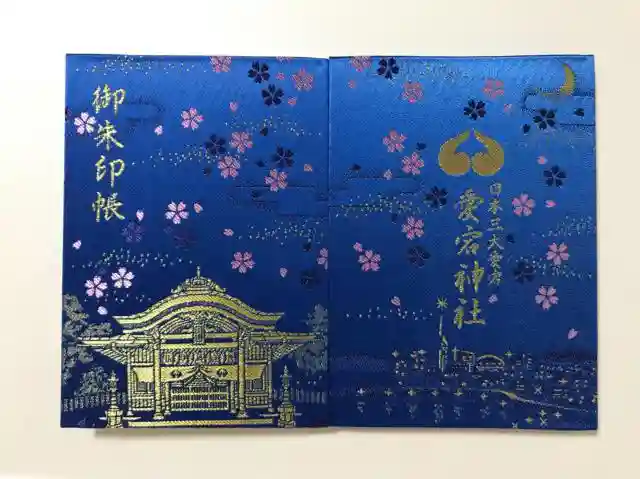 御朱印帳
日本三大愛宕
愛宕神社